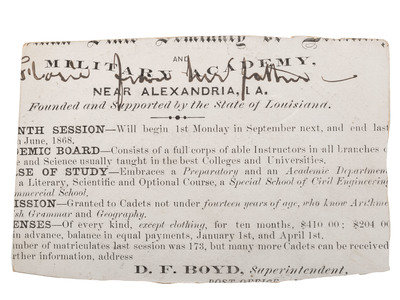 AND
MILITARY ACADEMY,
from her father
NEAR ALEXANDRIA, LA.
Founded and Supported by the State of Louisiana.
NTH SESSION—Will begin 1st Monday in September next, and end last
n June, 1868.
DEMIC BOARD—Consists of a full corps of able Instructors in all branches o
e and Science usually taught in the best Colleges and Universities.
SE OF STUDY—Embraces a Preparatory and an Academic Department
a Literary, Scientific and Optional Course, a Special School of Civil Engineering
mmercial School.
ISSION—Granted to Cadets not under fourteen years of age, who know Arithme
ish Grammar and Geography.
ENSES—Of every kind, except clothing, for ten months, $410 00; $204 00
in advance, balance in equal payments, January 1st, and April 1st.
mber of matriculates last session was 173, but many more Cadets can be received
rther information, address
D. F. BOYD, Superintendent,
POST OFFICE